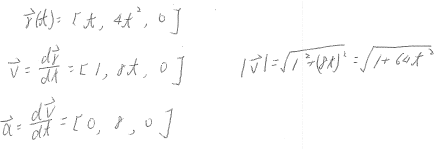 r⃗(t) = [t, 4t², 0]
v⃗ = dr⃗/dt = [1, 8t, 0]
|v⃗| = √(1² + (8t)²) = √(1 + 64t²)
a⃗ = dv⃗/dt = [0, 8, 0]